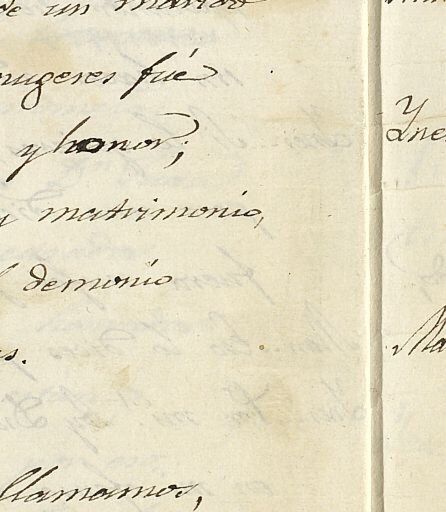 de un marido
mugeres fué
y honor;
y matrimonio,
demonio
llamamos,
Ynes
Ma